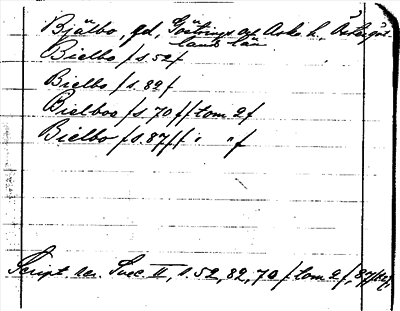 Bjälbo, gd, Göstrings o Aska h, Östergöt-
lands län
Bielbo / s. 52 /
Bielbo / s. 82 /
Bielboo / s. 70 / / tom 2 /
Bielbo / s. 87 / / " " /
Script. rer. Svec. II, s. 52, 82, 70 / tom 2 /, 87